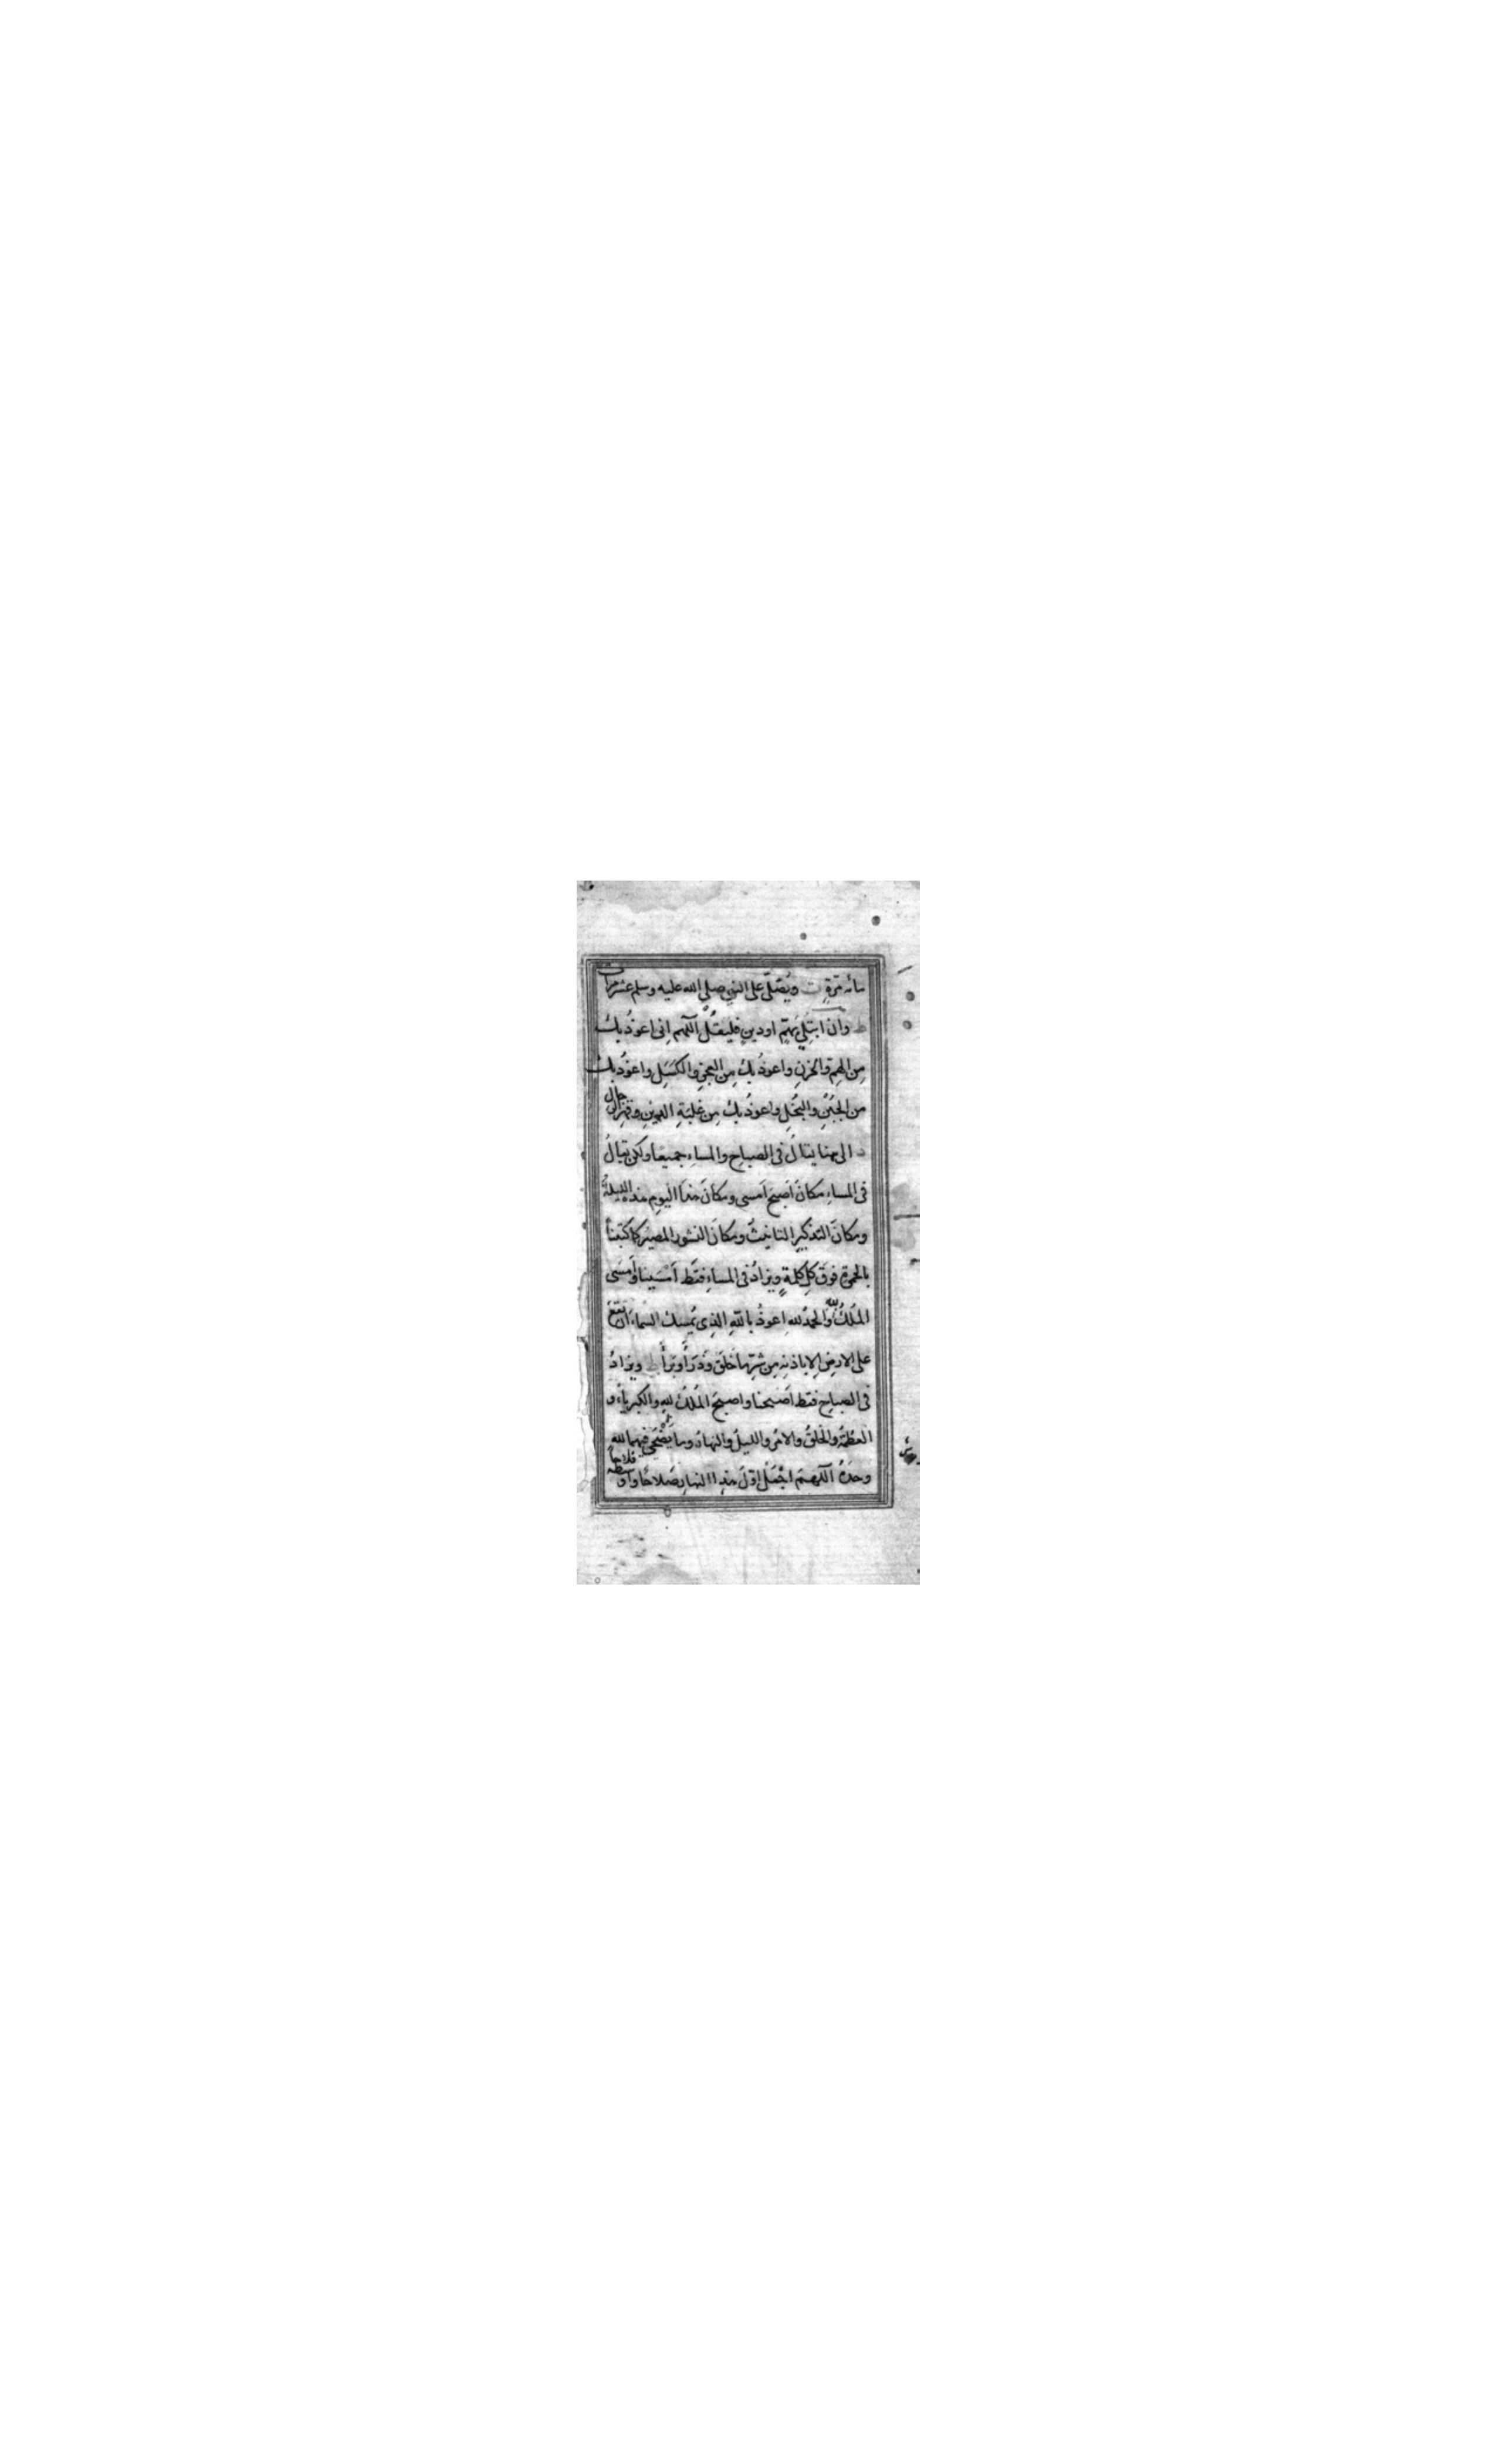 مائة مرّةٍ ت ويُصَلّي على النبي صلى الله عليه وسلم عشر مرات
ط وان ابتُلِيَ بِهَمٍّ او دينٍ فليَقُل اللّهم اِنى اعوذُ بك
مِن الهمِّ والحُزنِ واعوذُ بك مِن العجزِ والكسَلِ واعوذُ بك
من الجُبْنِ والبُخْلِ واعوذُ بك مِن غلَبَةِ الدينِ وقهرِ الرجال
د الى هنا يقالُ فى الصباحِ والمساءِ جميعا ولكن يقالُ
فى المساءِ مكانَ اَصبحَ اَمسى ومكانَ هذَا اليومِ هذه الليلةُ
ومكانَ التذكيرِ التانيثُ ومكانَ النشورِ المصيرُ كما كتبناُ
بالحمرةِ فوقَ كلِّ كلمةٍ ويزادُ فى المساءِ فقط اَمْسَينا وأَمسَى
المُلكُ للّٰه والحمدُ للهِ اعوذُ باللّهِ الذِى يُمسِك السماءَ ان تقعَ
على الارضِ اِلا باذنِه مِن شرِّ ما خلَقَ وذَرَأَ وبَرأَ ط ويزادُ
فى الصباحِ فقط اَصبَحنا واصبحَ المُلكُ للهِ والكبرياءُ و
العظمةُ والخلقُ والامرُ والليلُ والنهارُ وما يُضْحَى فيهما للّهِ
وحدَهُ اللّهمّ اجْعَلْ اوّلَ هذا النهارِ صَلاحًا واَوسطَه فلاحاً